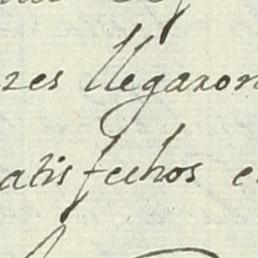 zes llegaron
atisfechos e